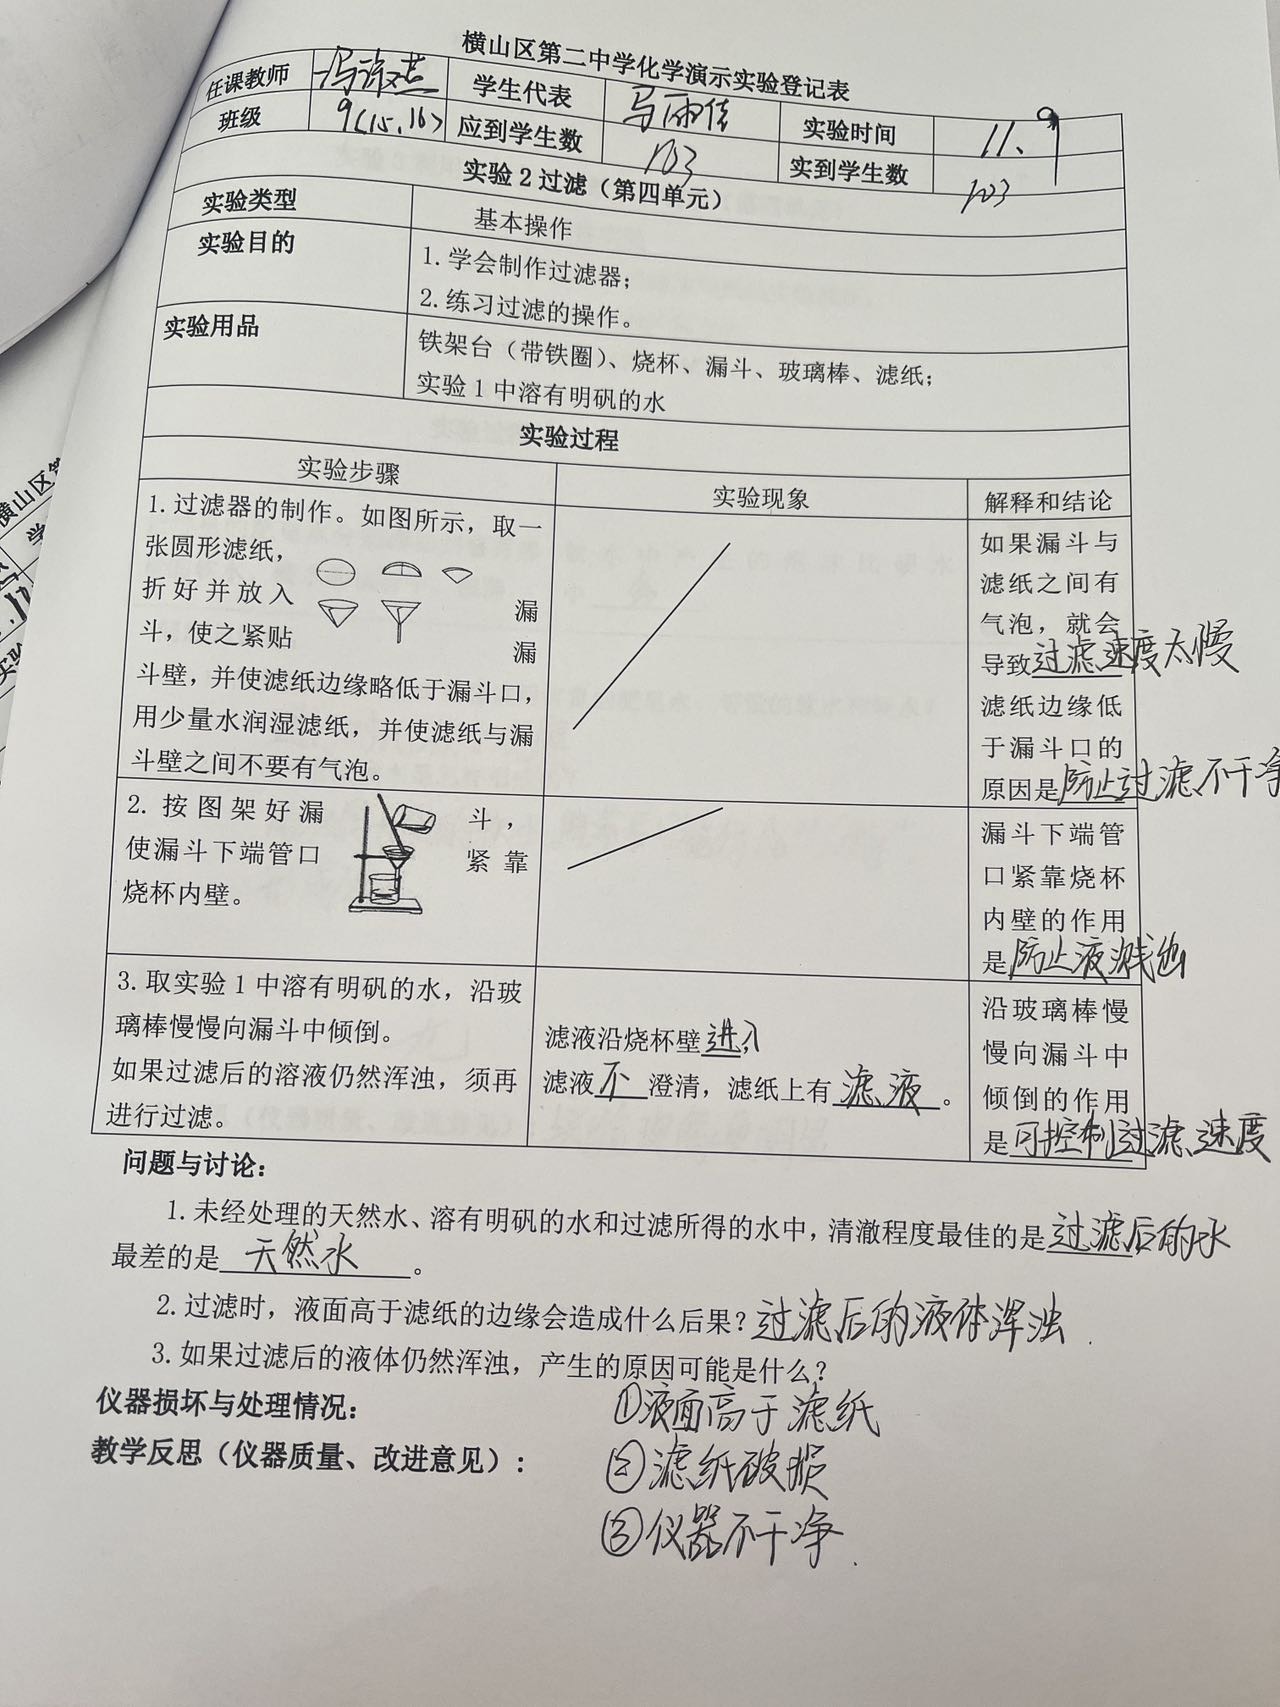 横山区第二中学化学演示实验登记表
任课教师 冯 学生代表 马雨佳 实验时间 11.9
班级 9(15.16) 应到学生数 103 实到学生数 103
实验2 过滤（第四单元）
实验类型 基本操作
实验目的 1.学会制作过滤器；
2.练习过滤的操作。
实验用品 铁架台（带铁圈）、烧杯、漏斗、玻璃棒、滤纸；
实验1中溶有明矾的水
实验过程
实验步骤 实验现象 解释和结论
1.过滤器的制作。如图所示，取一
张圆形滤纸，
折好并放入 漏
斗，使之紧贴 漏
斗壁，并使滤纸边缘略低于漏斗口，
用少量水润湿滤纸，并使滤纸与漏
斗壁之间不要有气泡。
如果漏斗与
滤纸之间有
气泡，就会
导致过滤速度太慢
滤纸边缘低
于漏斗口的
原因是防止过滤不干净
2. 按图架好漏 斗，
使漏斗下端管口 紧靠
烧杯内壁。
漏斗下端管
口紧靠烧杯
内壁的作用
是防止液溅出
3.取实验1中溶有明矾的水，沿玻
璃棒慢慢向漏斗中倾倒。
如果过滤后的溶液仍然浑浊，须再
进行过滤。
滤液沿烧杯壁进入
滤液不澄清，滤纸上有滤液。
沿玻璃棒慢
慢向漏斗中
倾倒的作用
是可控制过滤速度
问题与讨论：
1.未经处理的天然水、溶有明矾的水和过滤所得的水中，清澈程度最佳的是过滤后的水
最差的是天然水。
2.过滤时，液面高于滤纸的边缘会造成什么后果？过滤后的液体浑浊.
3.如果过滤后的液体仍然浑浊，产生的原因可能是什么？
仪器损坏与处理情况： ①液面高于滤纸
教学反思（仪器质量、改进意见）： ②滤纸破损
③仪器不干净.
横山区第